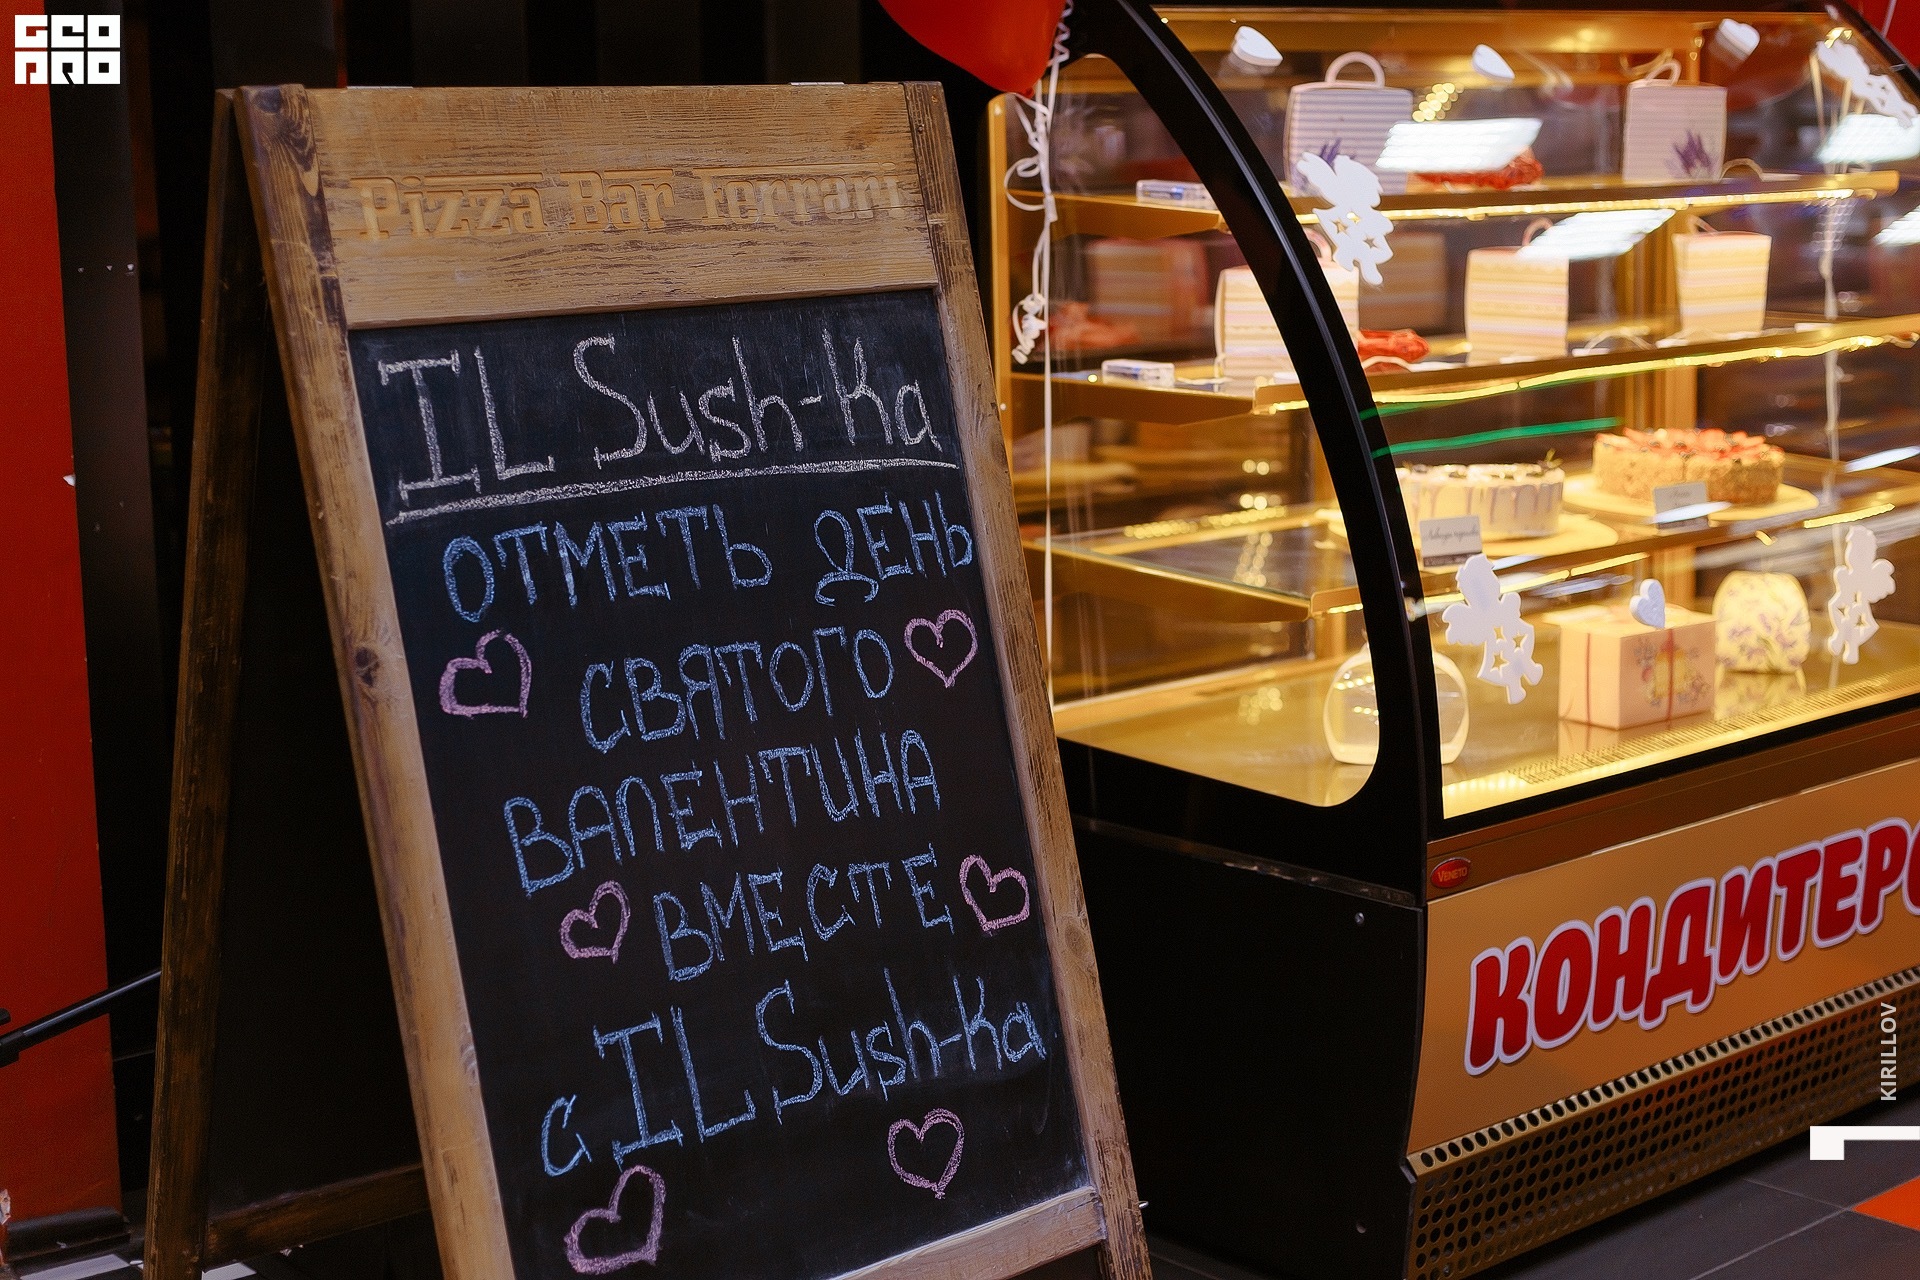 GEO
PRO
Pizza Bar Ferrari
IL Sush-Ka
ОТМЕТЬ ДЕНЬ
СВЯТОГО
ВАЛЕНТИНА
ВМЕСТЕ
с IL Sush-Ka
VENETO
КОНДИТЕРС
KIRILLOV